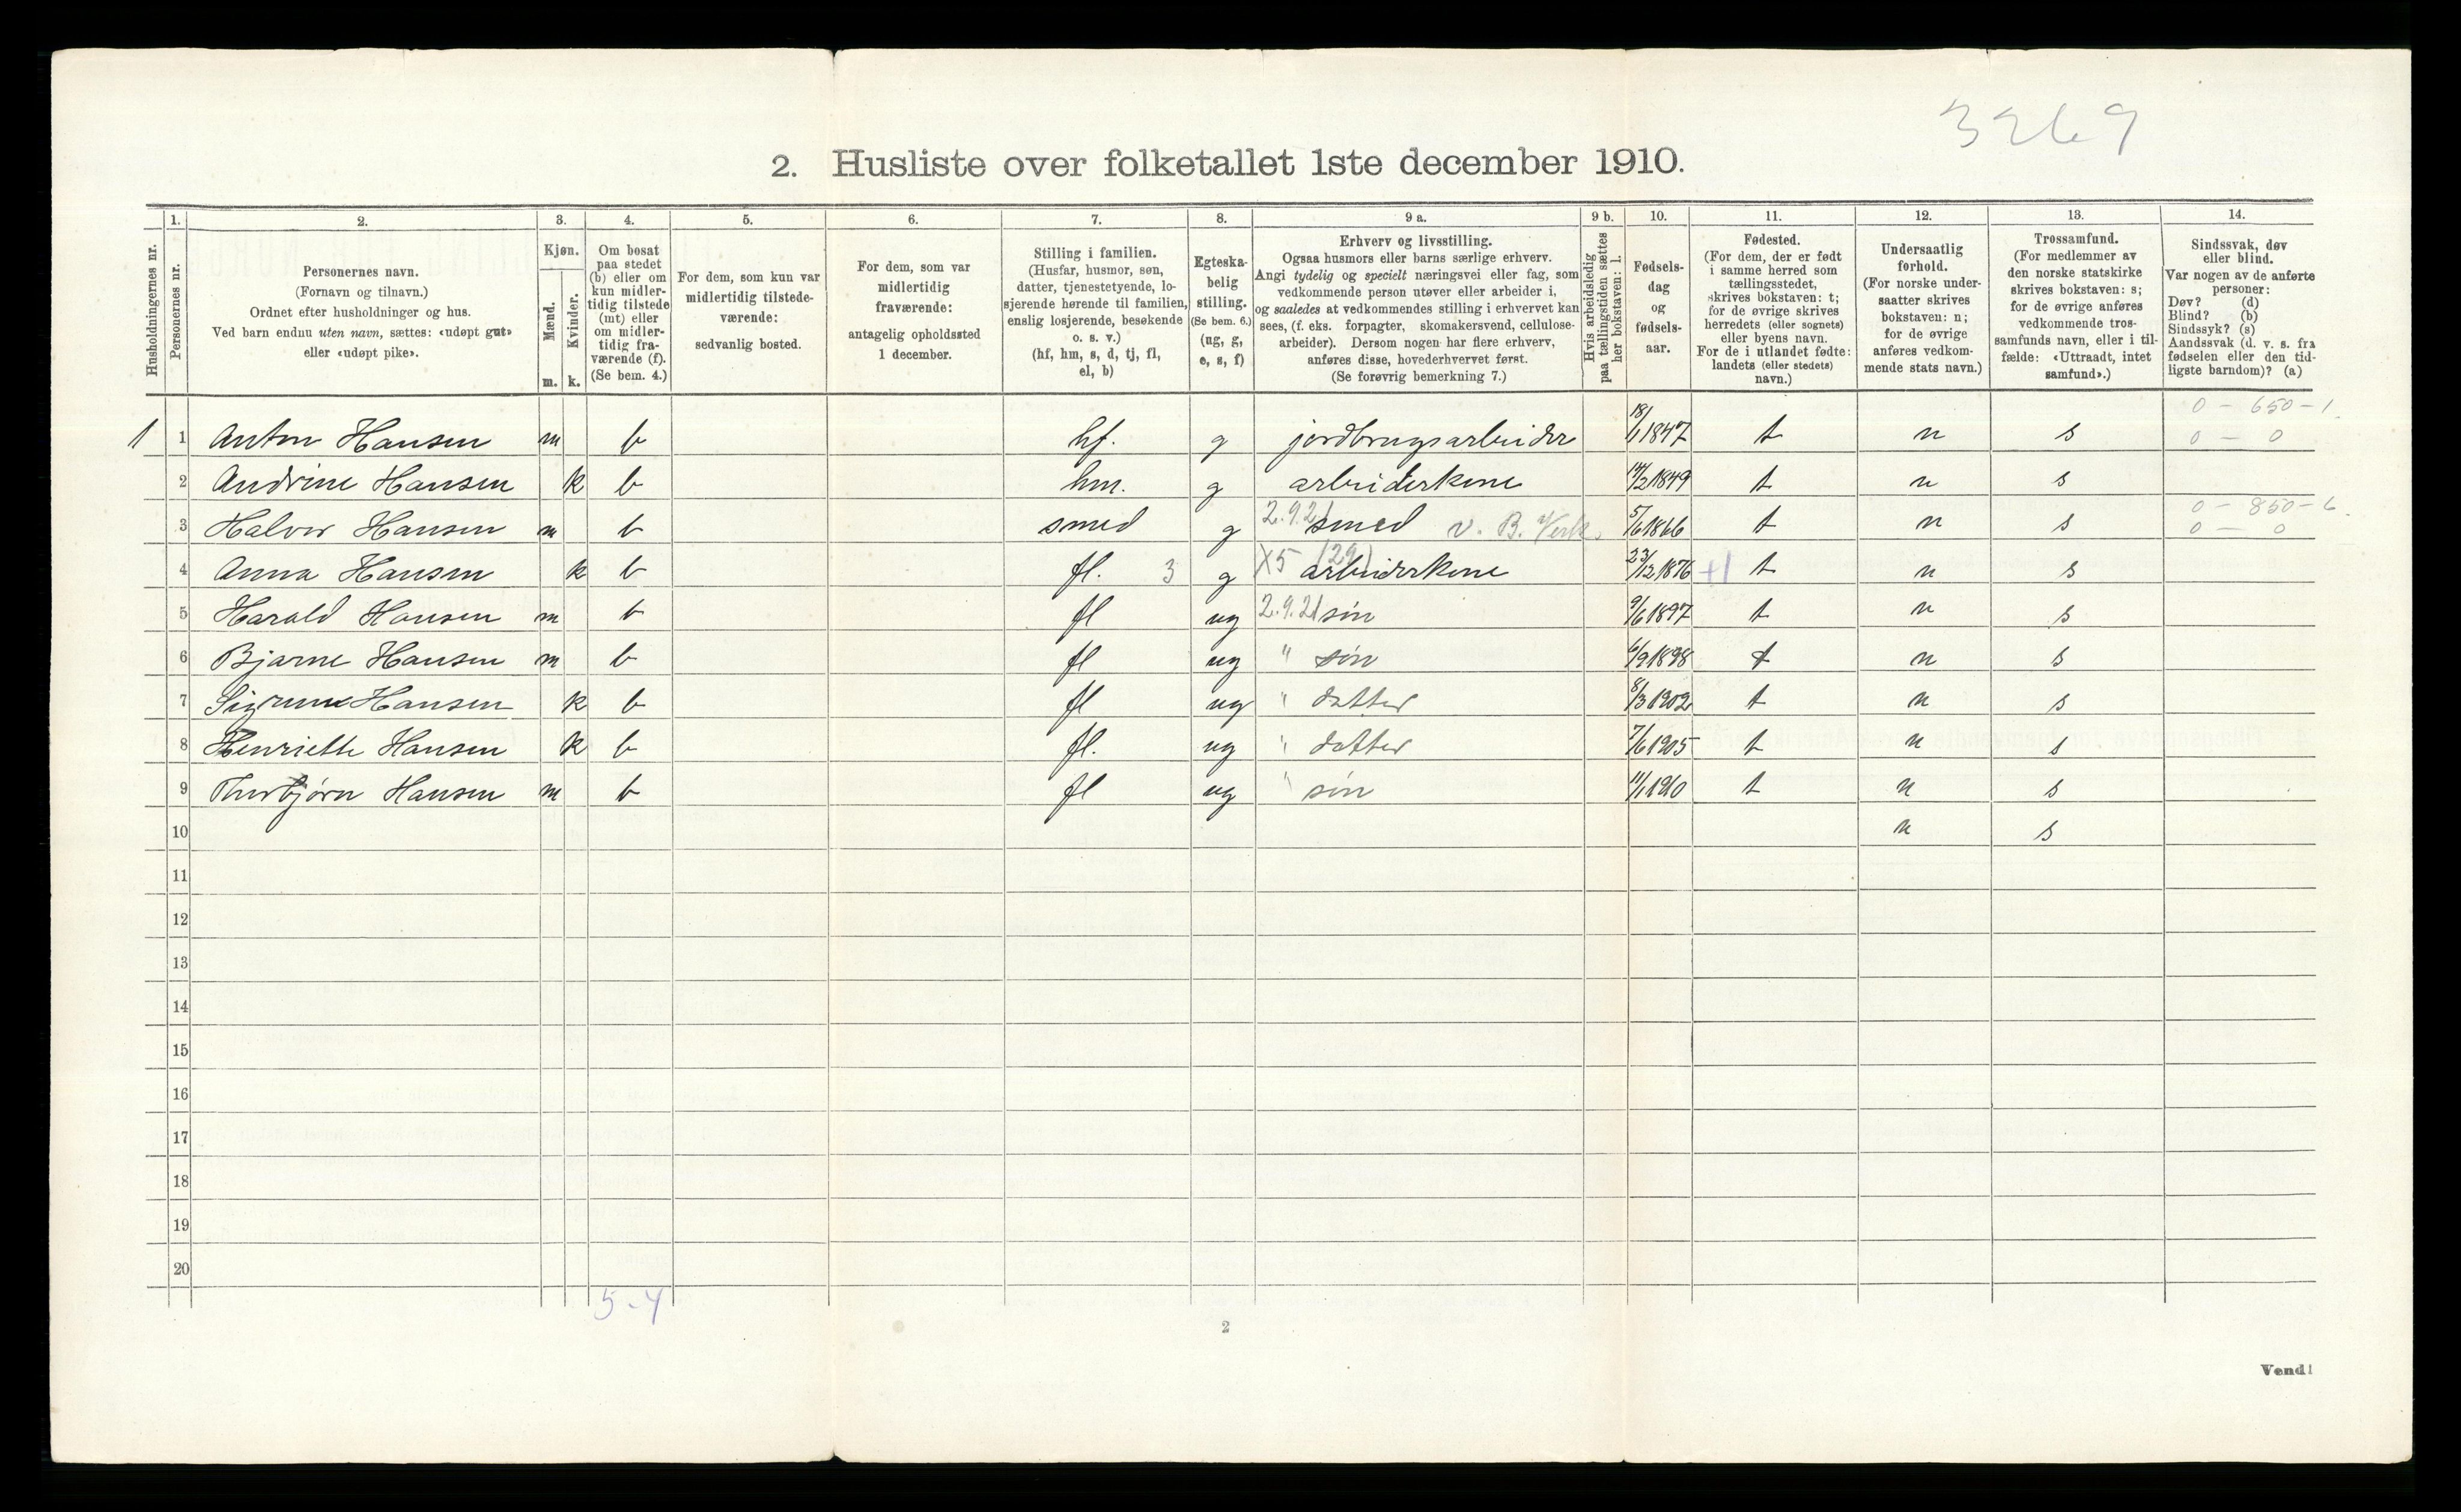 3269
2. Husliste over folketallet 1ste december 1910.
1. 2. 3. 4. 5. 6. 7. 8. 9 a. 9 b. 10. 11. 12. 13. 14.
Husholdningernes nr.
Personernes nr.
Personernes navn.
(Fornavn og tilnavn.)
Ordnet efter husholdninger og hus.
Ved barn endnu uten navn, sættes: «udøpt gut»
eller «udøpt pike».
Kjøn.
Mænd.
Kvinder.
m. k.
Om bosat
paa stedet
(b) eller om
kun midler-
tidig tilstede
(mt) eller
om midler-
tidig fra-
værende (f).
(Se bem. 4.)
For dem, som kun var
midlertidig tilstede-
værende:
sedvanlig bosted.
For dem, som var
midlertidig
fraværende:
antagelig opholdssted
1 december.
Stilling i familien.
(Husfar, husmor, søn,
datter, tjenestetyende, lo-
sjerende hørende til familien,
enslig losjerende, besøkende
o. s. v.)
(hf, hm, s, d, tj, fl,
el, b)
Egteska-
belig
stilling.
(Se bem. 6.)
(ug, g,
e, s, f)
Erhverv og livsstilling.
Ogsaa husmors eller barns særlige erhverv.
Angi tydelig og specielt næringsvei eller fag, som
vedkommende person utøver eller arbeider i,
og saaledes at vedkommendes stilling i erhvervet kan
sees, (f. eks. forpagter, skomakersvend, cellulose-
arbeider). Dersom nogen har flere erhverv,
anføres disse, hovederhvervet først.
(Se forøvrig bemerkning 7.)
Hvis arbeidsledig
paa tællingstiden sættes
her bokstaven: l.
Fødsels-
dag
og
fødsels-
aar.
Fødested.
(For dem, der er født
i samme herred som
tællingsstedet,
skrives bokstaven: t;
for de øvrige skrives
herredets (eller sognets)
eller byens navn.
For de i utlandet fødte:
landets (eller stedets)
navn.)
Undersaatlig
forhold.
(For norske under-
saatter skrives
bokstaven: n;
for de øvrige
anføres vedkom-
mende stats navn.)
Trossamfund.
(For medlemmer av
den norske statskirke
skrives bokstaven: s;
for de øvrige anføres
vedkommende tros-
samfunds navn, eller i til-
fælde: «Uttraadt, intet
samfund».)
Sindssvak, døv
eller blind.
Var nogen av de anførte
personer:
Døv? (d)
Blind? (b)
Sindssyk? (s)
Aandssvak (d. v. s. fra
fødselen eller den tid-
ligste barndom)? (a)
0 – 650 – 1
1 1 Anton Hansen m b hf. g jordbrugsarbeider 18/1 1847 t n s 0 – 0
2 Andrine Hansen k b hm. g arbeiderkone 14/2 1849 t n s
0 – 850 – 6
3 Halvor Hansen m b smed g 2.9.21 smed v. B. Verk. 5/6 1866 t n s 0 – 0
4 Anna Hansen k b fl. 3 g X5 (29) arbeiderkone 23/12 1876 +1 t n s
5 Harald Hansen m b fl ug 2.9.21 sön 9/6 1897 t n s
6 Bjarne Hansen m b fl ug " sön 6/9 1898 t n s
7 Sigrune Hansen k b fl ug " datter 8/3 1902 t n s
8 Henriette Hansen k b fl. ug " datter 7/6 1905 t n s
9 Thorbjørn Hansen m b fl ug " sön 11/1 1910 t n s
10 n s
11
12
13
14
15
16
17
18
19
20
5 - 4
2
Vend!